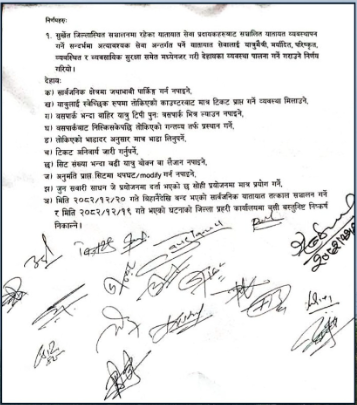 निर्णयहरुः
१. सुर्खेत जिल्लास्थित सञ्चालनमा रहेका यातायात सेवा प्रदायकहरुबाट सञ्चालित यातायात व्यवस्थापन
गर्ने सन्दर्भमा अत्यावश्यक सेवा अन्तर्गत पर्ने यातायात सेवालाई यात्रुमैत्री, मर्यादित, परिष्कृत,
व्यवस्थित र व्यवसायिक सुरक्षा समेत मध्येनजर गरी देहायका व्यवस्था पालना गर्ने गराउने निर्णय
गरियो।
देहायः
क) सार्वजनिक क्षेत्रमा जथाभावी पार्किङ गर्न नपाइने,
ख) यात्रुलाई स्वेच्छिक रुपमा तोकिएको काउण्टरबाट मात्र टिकट प्राप्त गर्ने व्यवस्था मिलाउने,
ग) बसपार्क भन्दा बाहिर यात्रु टिपी पुनः बसपार्क भित्र ल्याउन नपाइने,
घ) बसपार्कबाट निस्किसकेपछि तोकिएको गन्तव्य तर्फ प्रस्थान गर्ने,
ङ) तोकिएको भाडादर अनुसार मात्र भाडा लिनुपर्ने,
च) टिकट अनिवार्य जारी गर्नुपर्ने,
छ) सिट संख्या भन्दा बढी यात्रु बोक्न वा लैजान नपाइने,
ज) अनुमति प्राप्त सिटमा थपघट/modify गर्न नपाइने,
झ) जुन सवारी साधन जे प्रयोजनमा दर्ता भएको छ सोही प्रयोजनमा मात्र प्रयोग गर्ने,
ञ) मिति २०८२/१२/२० गते बिहानैदेखि बन्द भएको सार्वजनिक यातायात तत्काल सञ्चालन गर्ने
र मिति २०८२/१२/१९ गते भएको घटनाको जिल्ला प्रहरी कार्यालयमा बुसी वस्तुनिष्ट निष्कर्ष
निकाल्ने।